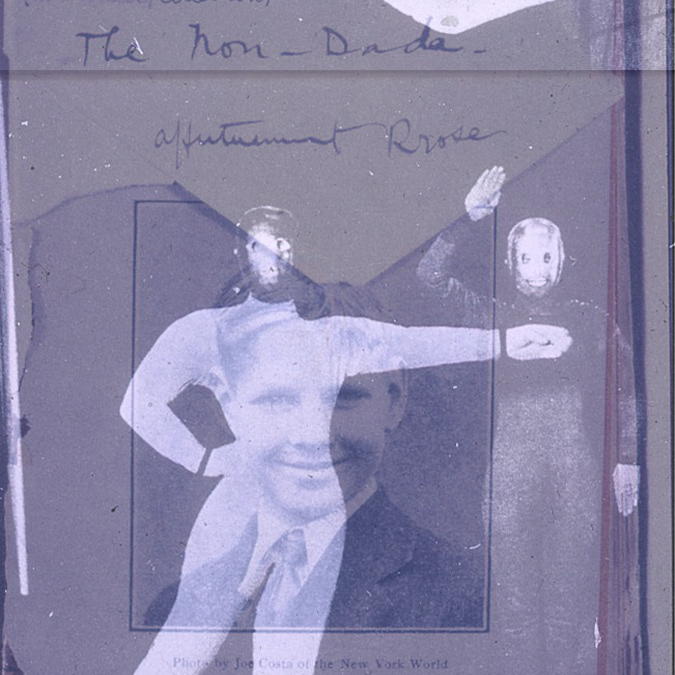 The Non-Dada-
affectueusement Rrose
Photo by Joe Costa of the New York World